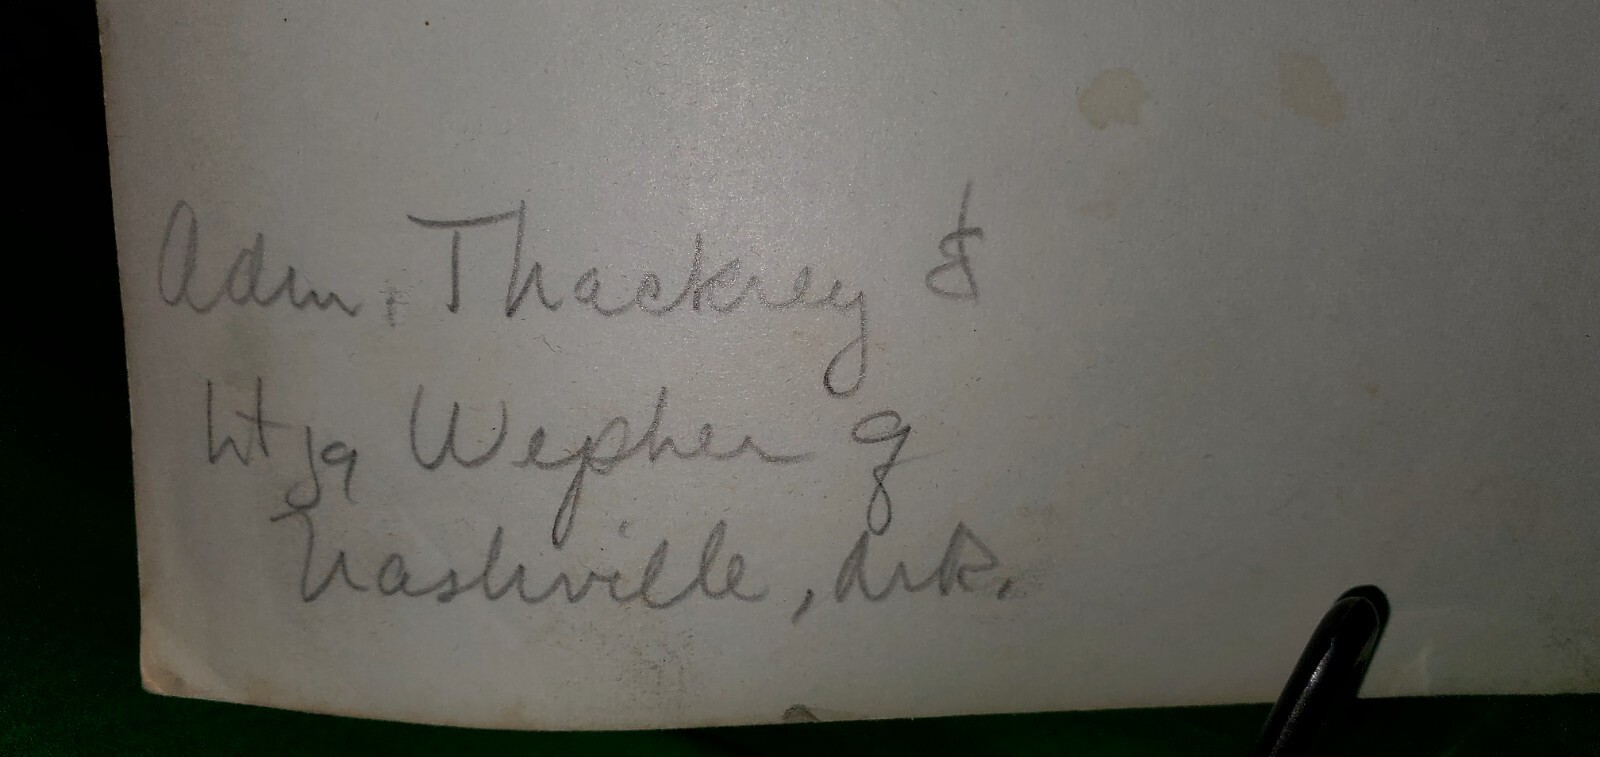 Adm. Thackrey &
Lt jg Wepher of
Nashville, Ark.